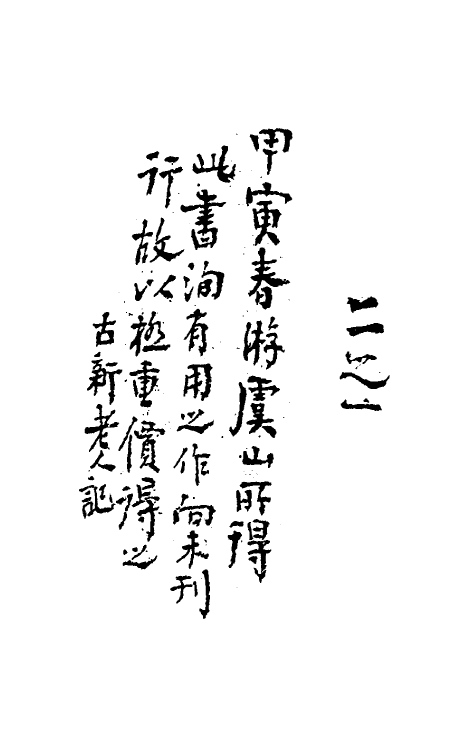 二之一
甲寅春游虞山所得
此書洵有用之作尚未刊
行故以極重價得之
古新老人記